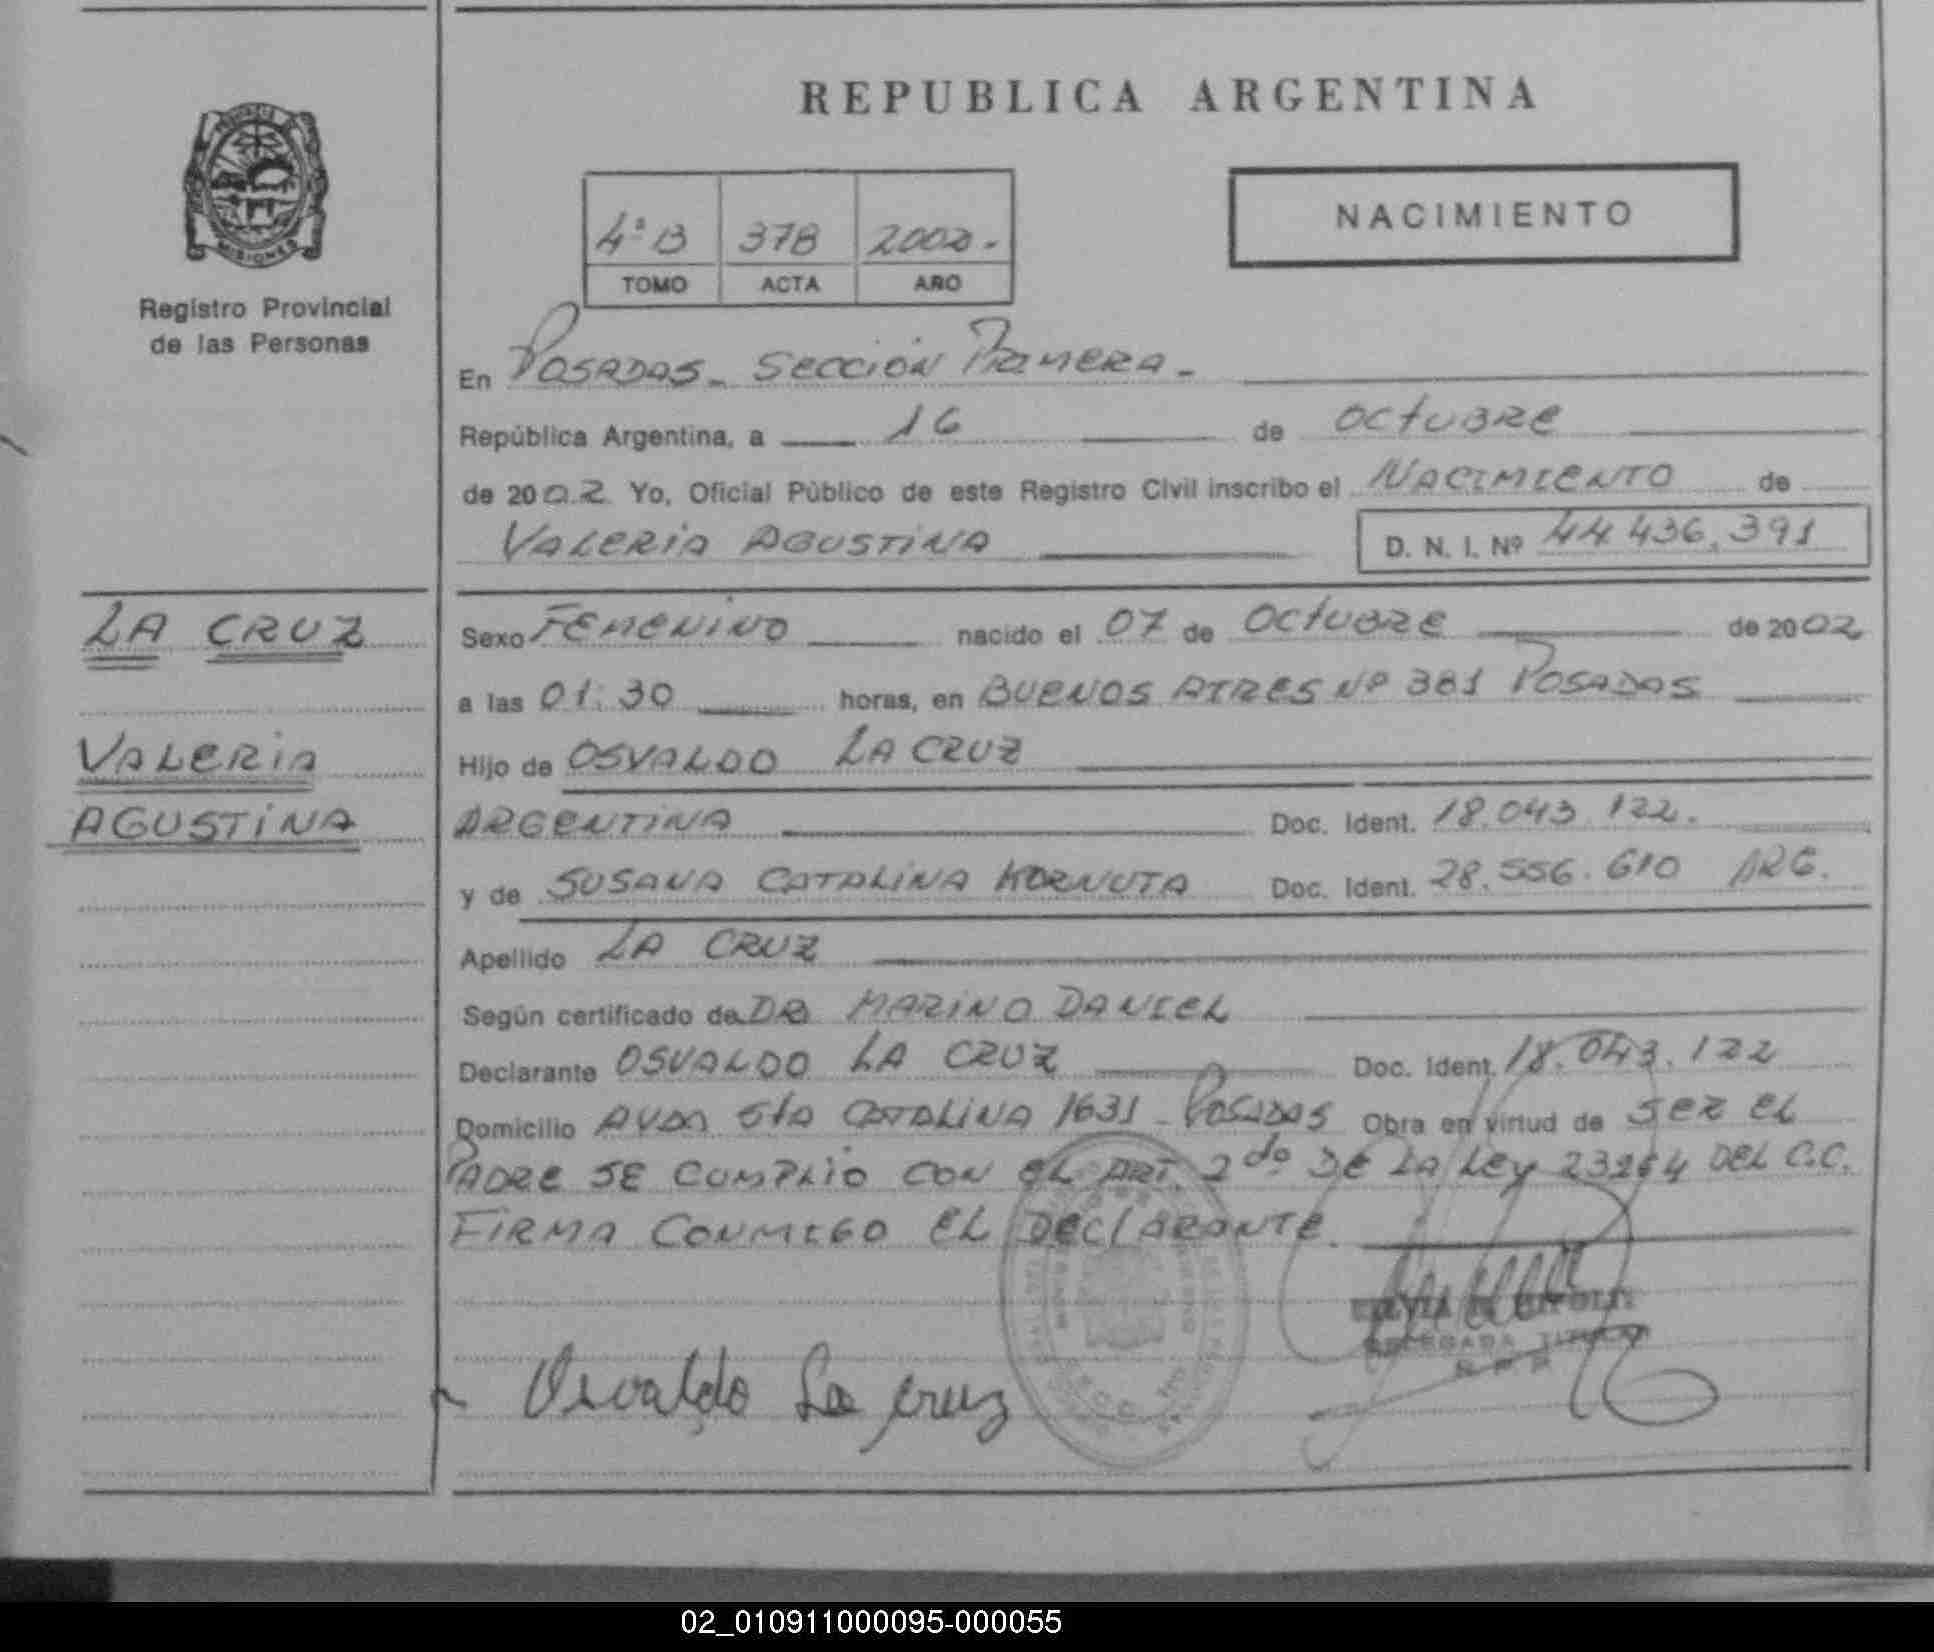 REPUBLICA ARGENTINA
MISIONES
Registro Provincial
de las Personas
4º B 378 2002.-
TOMO ACTA AÑO
NACIMIENTO
En POSADAS - SECCIÓN PRIMERA -
República Argentina, a 16 de OCTUBRE
de 2002 Yo, Oficial Público de este Registro Civil inscribo el NACIMIENTO de
VALERIA AGUSTINA D. N. I. Nº 44 436.391
LA CRUZ
VALERIA
AGUSTINA
Sexo FEMENINO nacido el 07 de OCTUBRE de 2002
a las 01:30 horas, en BUENOS AIRES Nº 381 POSADAS
Hijo de OSVALDO LA CRUZ
ARGENTINA Doc. Ident. 18.043.122.
y de SUSANA CATALINA KORNUTA Doc. Ident. 28.556.610 ARG.
Apellido LA CRUZ
Según certificado de DR MARINO DANIEL
Declarante OSVALDO LA CRUZ Doc. Ident. 18.043.122
Domicilio AVDA STA CATALINA 1631 - POSADAS Obra en virtud de SER EL
PADRE SE CUMPLIO CON EL ART. 2do DE LA LEY 23264 DEL C.C.
FIRMA CONMIGO EL DECLARANTE.
DELEGADA TITULAR
R P P
Osvaldo La cruz
02_010911000095-000055